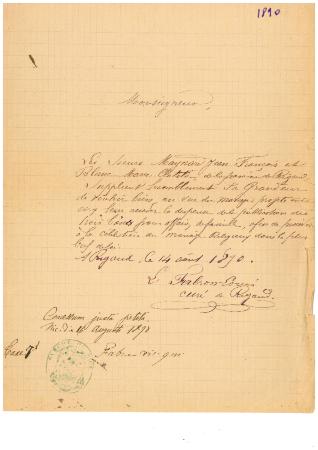 1890
Monseigneur,
Les Sieurs Maynard Jean François et
Blanc Marie de la paroisse de Rigaud,
Supplient humblement Sa Grandeur
de vouloir bien, en vue du mariage projeté entre
eux, leur accorder la dispense de la publication des
trois bans pour affaire de famille, afin de procéder
à la célébration du mariage religieux dans le plus
bref délai.
A Rigaud, le 14 août 1890.
curé de Rigaud.
Concessum juxta petita.
die 16 augusti 1890
vic. gen